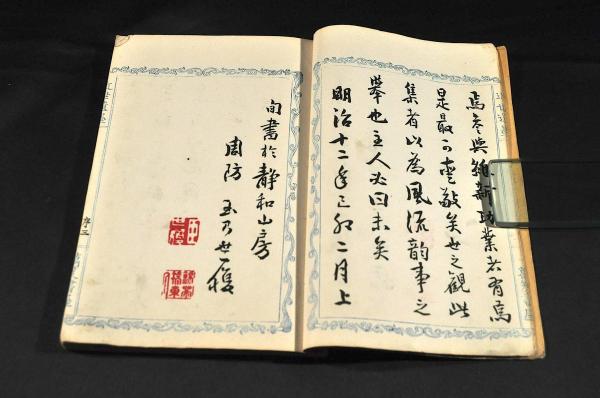 焉参與維新功業者有焉
是最可愛敬矣世之觀此
集者以為風流韻事之
舉也主人必曰未矣
明治十二年己卯二月上
旬書於静和山房
周防 玉乃世履
序三